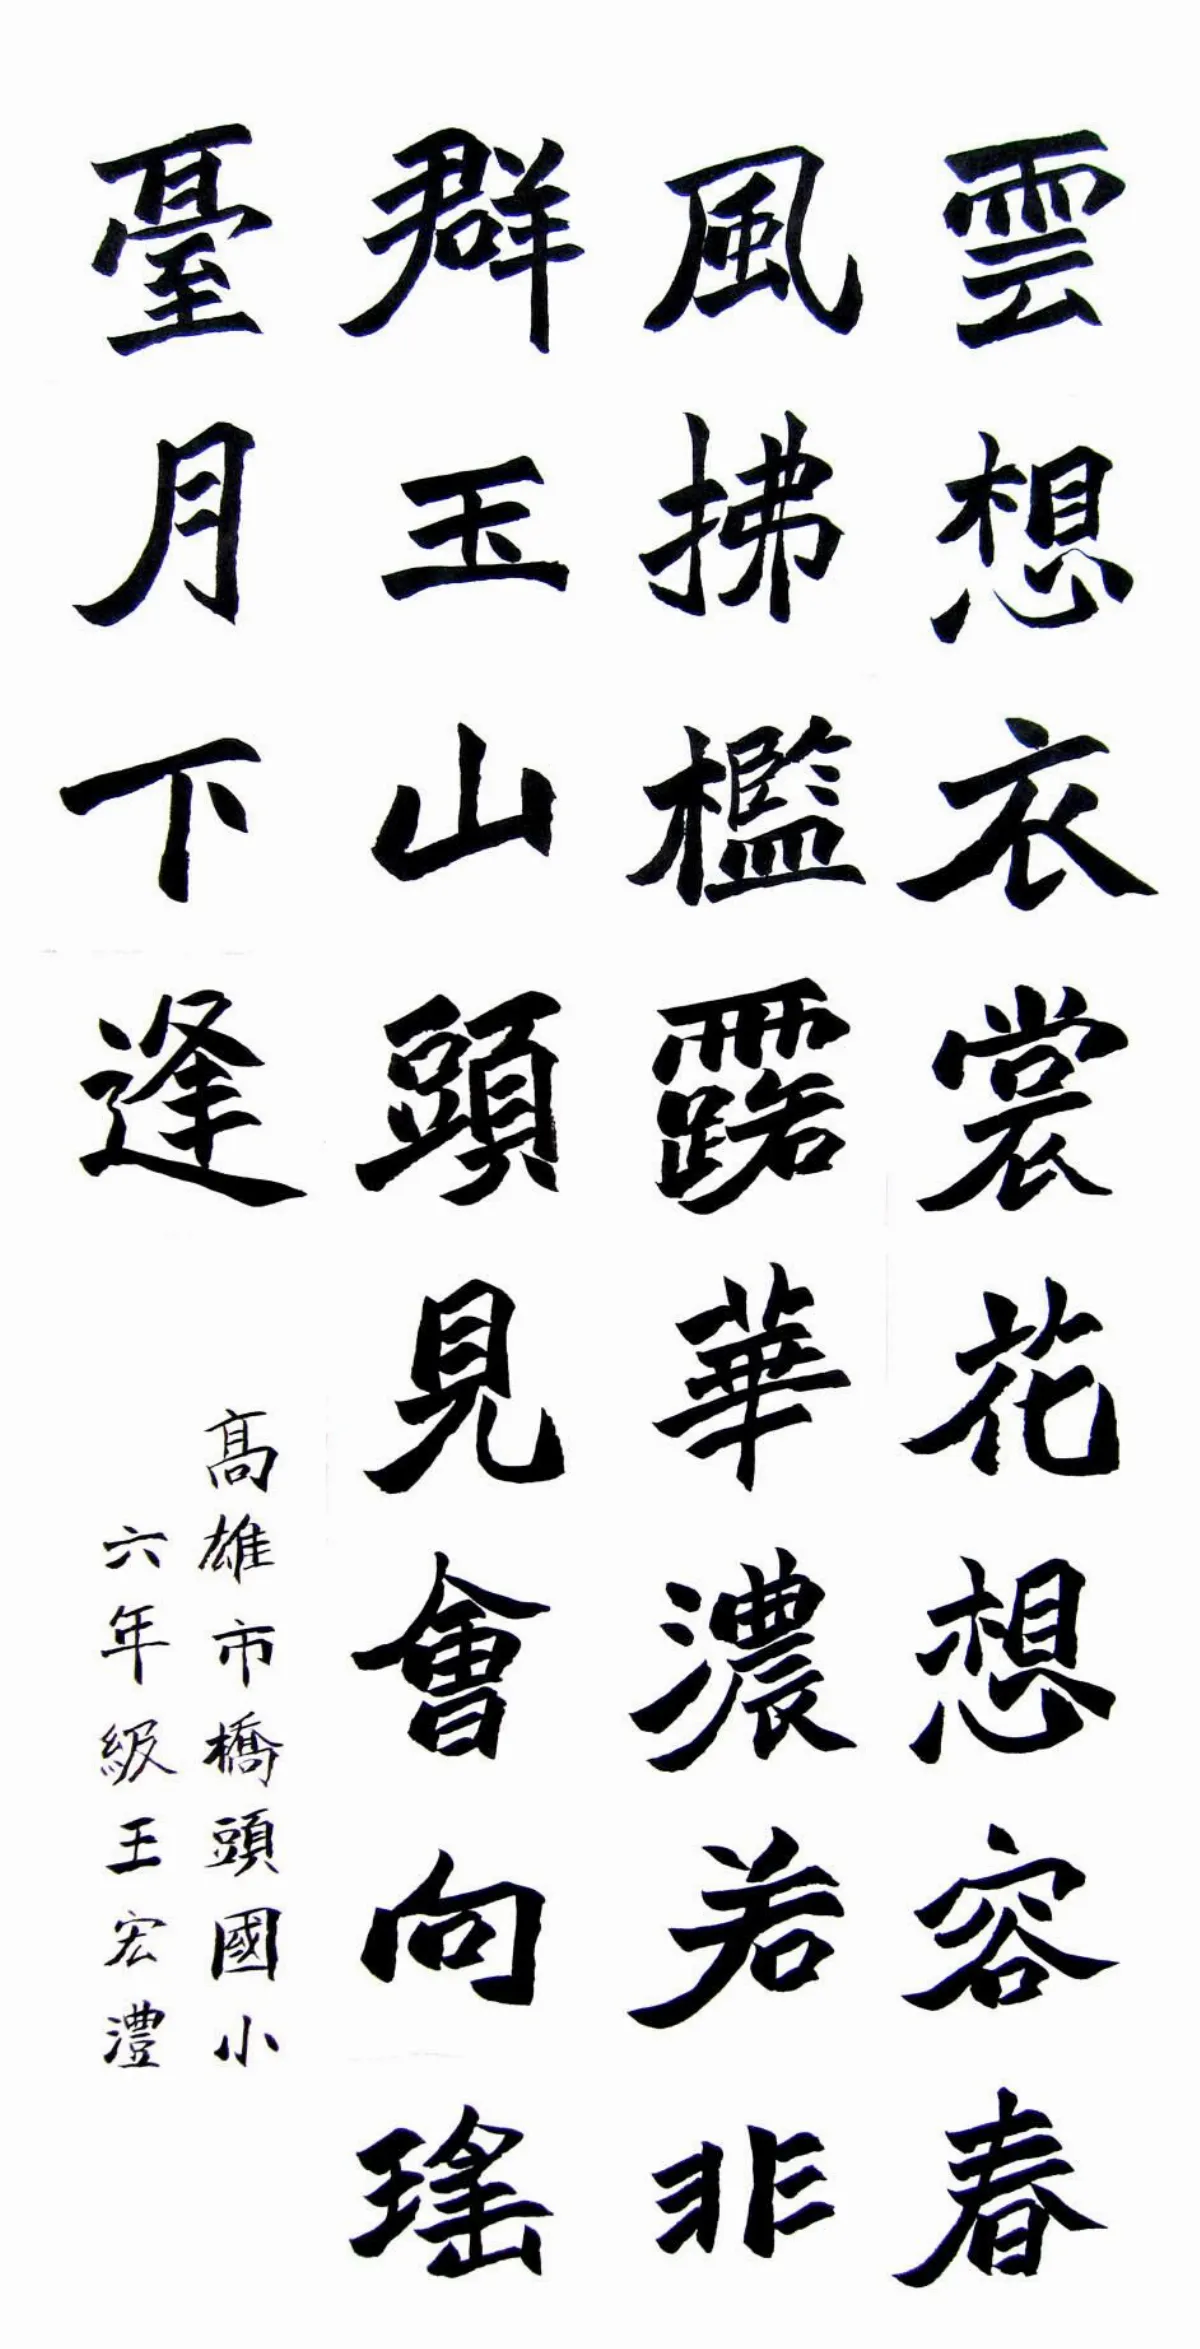 雲想衣裳花想容春
風拂檻露華濃若非
群玉山頭見會向瑤
臺月下逢
高雄市橋頭國小
六年級王宏澧